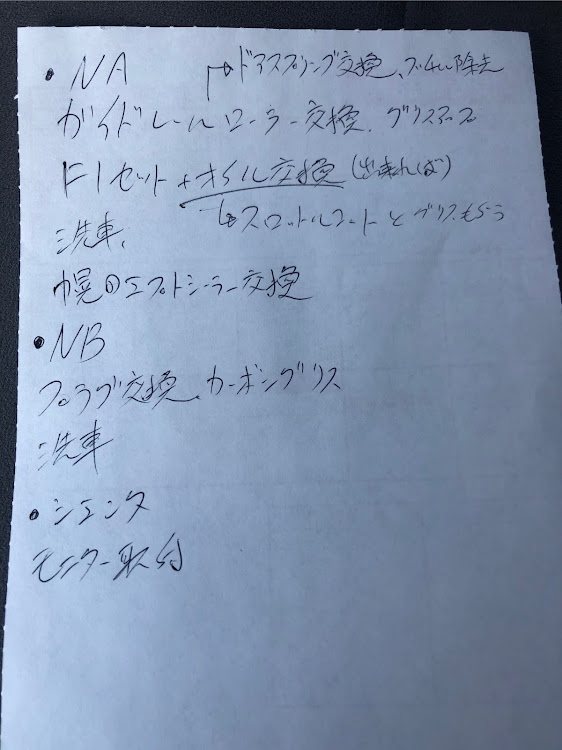 • NA
ドアスプリング交換、ブチル除去
ガイドレールローラー交換、グリスアップ
F1セット+オイル交換(出来れば)
スロットルコートとグリスもらう
洗車、
幌のエプトシーラー交換
• NB
プラグ交換、カーボングリス
洗車
• シエンタ
モニター取付